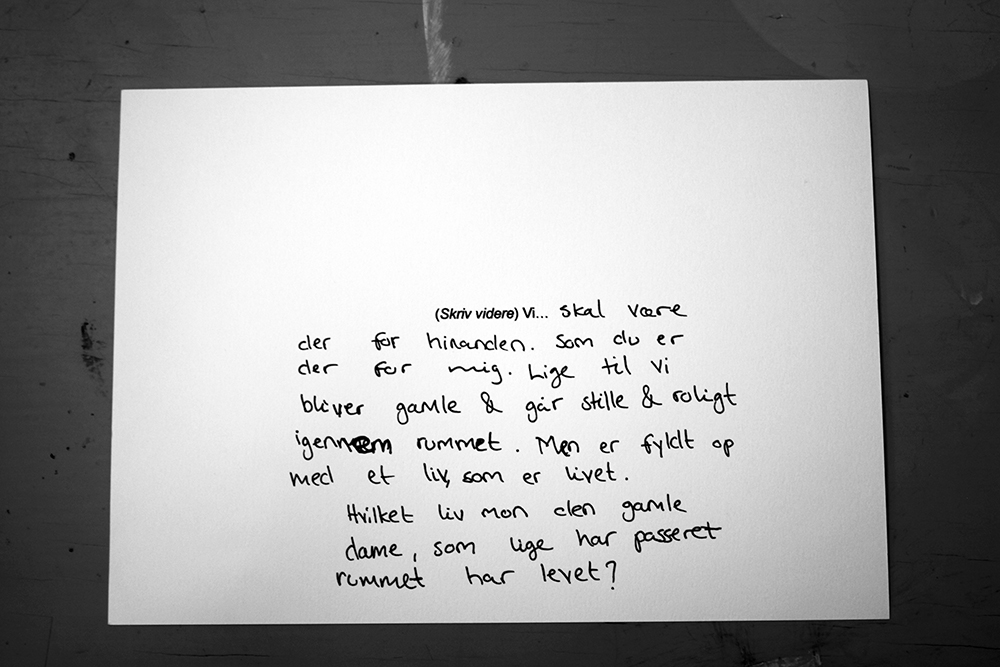 (Skriv videre) Vi... skal være
der for hinanden. Som du er
der for mig. Lige til vi
bliver gamle & går stille & roligt
igennem rummet. Men er fyldt op
med et liv, som er livet.
Hvilket liv mon den gamle
dame, som lige har passeret
rummet har levet?